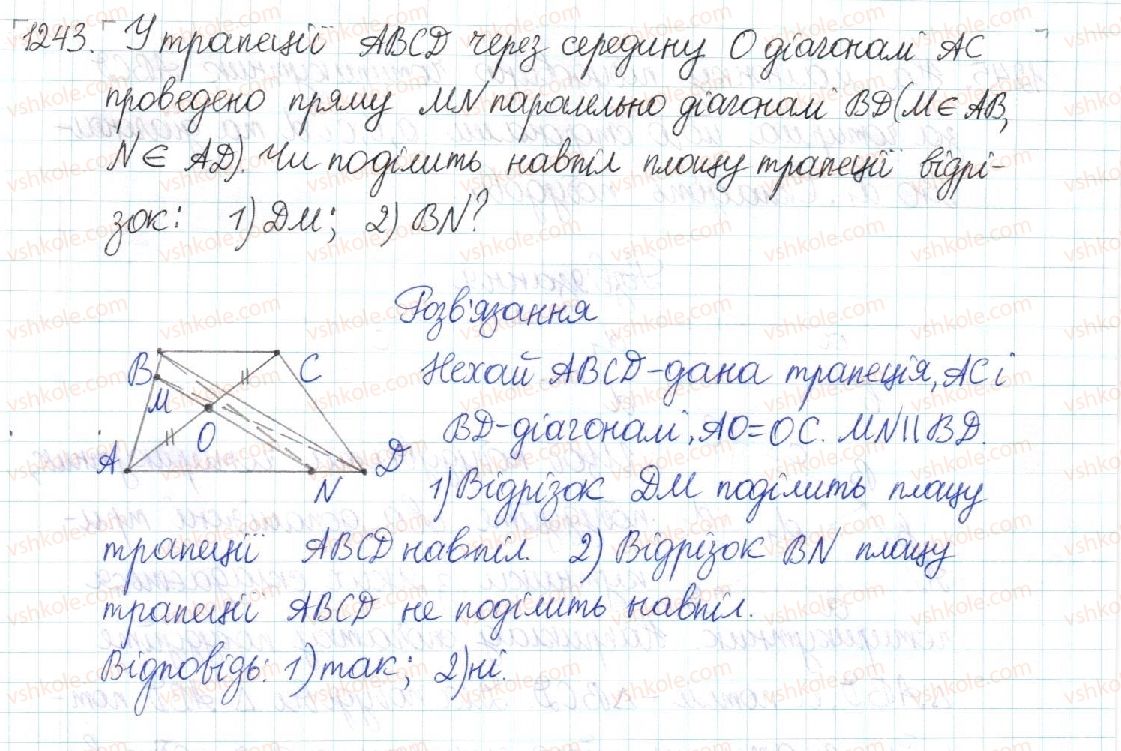 1243. У трапеції ABCD через середину O діагоналі AC
проведено пряму MN паралельно діагоналі BD (M ∈ AB,
N ∈ AD). Чи поділить навпіл площу трапеції відрі-
зок: 1) DM; 2) BN?
Розв'язання
B
C
M
O
A
D
N
Нехай ABCD - дана трапеція, AC і
BD - діагоналі, AO = OC. MN || BD.
1) Відрізок DM поділить площу
трапеції ABCD навпіл. 2) Відрізок BN площу
трапеції ABCD не поділить навпіл.
Відповідь: 1) так; 2) ні.
vshkole.com